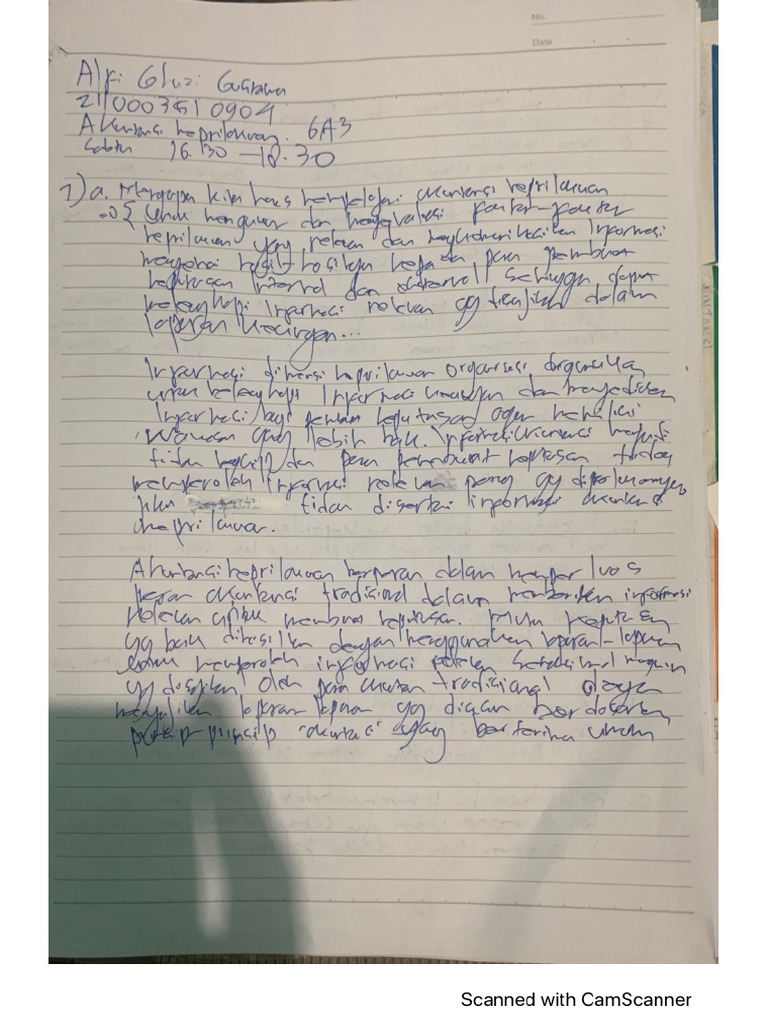 No.
Date
Alfi Ghuzi Gustiawan
21000351 0904
Akuntansi keprilakuan. 6A3
Sabtu 16.30 – 18.30
1) a. Mengapa kita harus mempelajari akuntansi keprilakuan
=> Untuk mengukur dan mengevaluasi faktor-faktor
keprilakuan yang relevan dan mengkomunikasikan Informasi
mengenai hasil-hasilnya kepada para pembuat
keputusan Internal dan eksternal sehingga dapat
melengkapi Informasi relevan yg disajikan dalam
laporan keuangan...
Informasi dimensi keprilakuan organisasi digunakan
untuk melengkapi Informasi keuangan dan menyediakan
Informasi bagi pembuat keputusan agar memiliki
wawasan yang lebih baik. Informasi akuntansi menjadi
tidak lengkap dan para pembuat keputusan tidak
memperoleh informasi relevan yg diperlukannya
jika tidak disertai informasi akuntansi
keprilakuan.
Akuntansi keprilakuan berperan dalam memperluas
peran akuntansi tradisional dalam memberikan informasi
relevan untuk membuat keputusan. Mutu keputusan
yg baik dihasilkan dengan menggunakan laporan-laporan
memperoleh informasi relevan semaksimal mungkin
yg disajikan oleh para akuntan tradisional
menyajikan laporan-laporan yg disusun berdasarkan
prinsip-prinsip akuntansi yang berterima umum
Scanned with CamScanner